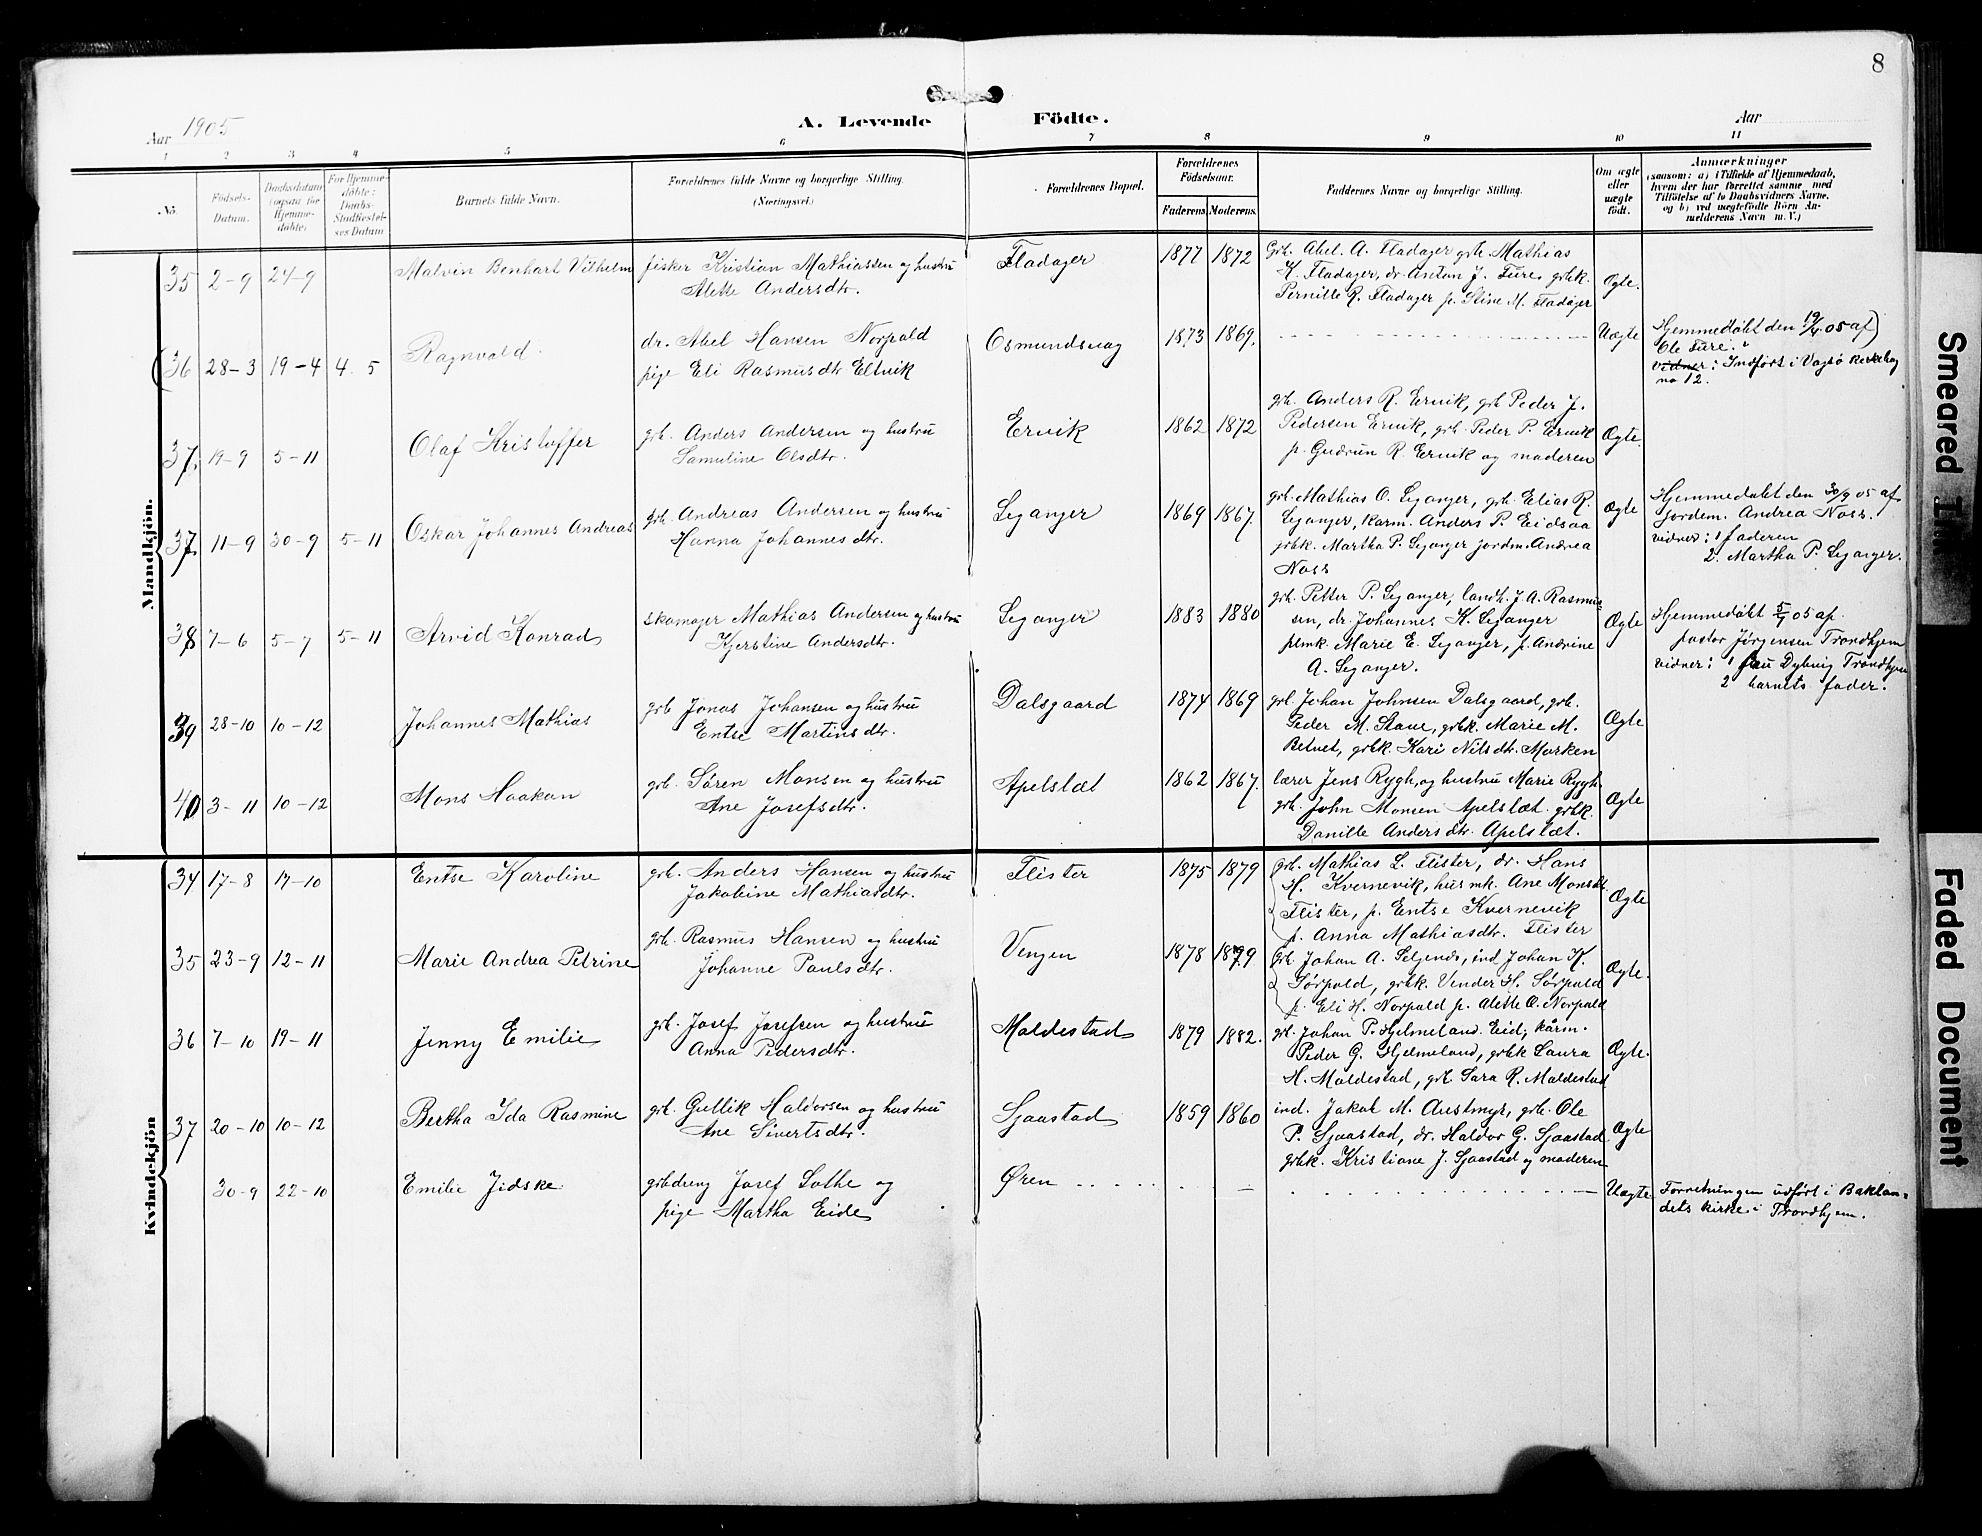 8
Aar 1905
A. Levende Födte.
Aar
1 2 3 4 5 6 7 8 9 10 11
No. Födsels-Datum. Daabsdatum (ogsaa for Hjemme-döbte. For Hjemme-döbte: Daabs-Stadfæstel-ses Datum Barnets fulde Navn. Forældrenes fulde Navne og borgerlige Stilling. (Næringsvei.) Forældrenes Bopæl. Forældrenes Födselsaar. Faderens. Moderens. Faddernes Navne og borgerlige Stilling. Om ægte eller uægte födt. Anmærkninger
(saasom: a) i Tilfælde af Hjemmedaab,
hvem der har forrettet samme, med
Tilföielse af to Daabsvidners Navne,
og b) ved uægtefödte Börn An-
melderens Navn m. V.)
Mandkjön.
35 2-9 24-9 Malvin Benhart Vilhelm fisker Kristian Mathiassen og hustru
Alette Andersdtr. Fladager 1877 1872 Grb. Abel. A. Fladager grb. Mathias
K. Fladager, dr. Anton J. Fure, grbk.
Pernille R. Fladager p. Stine M. Fladager Ægte.
(36 28-3 19-4 4. 5 Ragnvald. dr. Abel Hansen Norpald
pige Eli Rasmusdtr Eltvik Osmundsvag 1873 1869. Uægte Hjemmedøbt den 19/4 05 af)
Ole Fure.
vidner: Indført i Vagsø kirkebog
no 12.
37. 19-9 5-11 Olaf Kristoffer grb. Anders Andersen og hustru
Samuline Olsdtr. Ervik 1862 1872 grb. Anders R. Ervik, grb Peder J.
Pedersen Ervik, grb. Peder P. Ervik
p. Gudrun R. Ervik og moderen Ægte.
37. 11-9 30-9 5-11 Oskar Johannes Andreas grb. Andreas Andersen og hustru
Hanna Johannesdtr. Leganger 1869 1867. grb. Mathias O. Leganger, grb. Elias R.
Leganger, karm. Anders P. Eidsaa
grbk. Martha P. Leganger jordm. Andrea
Noss Ægte Hjemmedøbt den 30/9 05 af
jordem. Andrea Noss.
vidner: 1 faderen
2. Martha P. Leganger.
38 7-6 5-7 5-11 Arvid Konrad skomager Mathias Andersen og hustru
Kjerstine Andersdtr. Leganger 1883 1880 grb. Petter P. Leganger, landh. J. A. Rasmus-
sen, dr. Johannes K. Leganger
plmk. Marie E. Leganger, p. Andrine
A. Leganger. Ægte Hjemmedøbt 5/7 05 af
pastor Jørgensen Trondhjem
vidner: 1 fru Dybvig Trondhjem
2 barnets fader.
39 28-10 10-12 Johannes Mathias grb Jonas Johansen og hustru
Entse Martinsdtr. Dalsgaard 1874 1869 grb. Johan Johnsen Dalsgaard, grb.
Peder M. Stave, grbk. Marie M.
grbk. Kari Nilsdtr. Marken Ægte
40 3-11 10-12 Mons Haakon grb. Søren Monsen og hustru
Ane Josefsdtr. Apelsæt 1862 1867. lærer Jens Rygh, og hustru Marie Rygh.
grb. John Monsen Apelsæt grbk.
Danille Andersdtr. Apelsæt. Ægte
Kvindekjön
34 17-8 17-10 Entse Karoline grb. Anders Hansen og hustru
Jakobine Mathiasdtr. Flister 1875 1879 grb. Mathias L. Flister, dr. Hans
H. Kvernevik, husmk. Ane Monsdt.
Flister, p. Entse Kvernevik
p. Anna Mathiasdtr. Flister Ægte
35 23-9 12-11 Marie Andrea Petrine grb. Rasmus Hansen og hustru
Johanne Paulsdtr. Vengen 1878 1879 grb. Johan A. ind Johan K.
Sørpold, grbk. Vender H. Sørpold
p. Eli H. Norpald p. Alette O. Norpald Ægte.
36 7-10 19-11 Jenny Emilie grb. Josef Josefsen og hustru
Anna Pedersdtr. Maldestad 1879 1882. grb. Johan P. Hjelmeland. Eid, kårm.
Peder G. Hjelmeland, grbk Laura
H. Maldestad, grb. Sara R. Maldestad Ægte.
37 20-10 10-12 Bertha Ida Rasmine grb. Gullik Haldorsen og hustru
Ane Sivertsdtr. Sjaastad 1859 1860 ind. Jakob M. Austmyr, grb. Ole
P. Sjaastad, dr. Haldor G. Sjaastad
grbk. Kristiane J. Sjaastad og moderen Ægte
30-9 22-10 Emilie Jidske grbdreng Josef Lothe og
pige Martha Eide Øren Uægte Forretningen udført i Baklan-
dets kirke i Trondhjem.
Smeared Ink
Faded Document